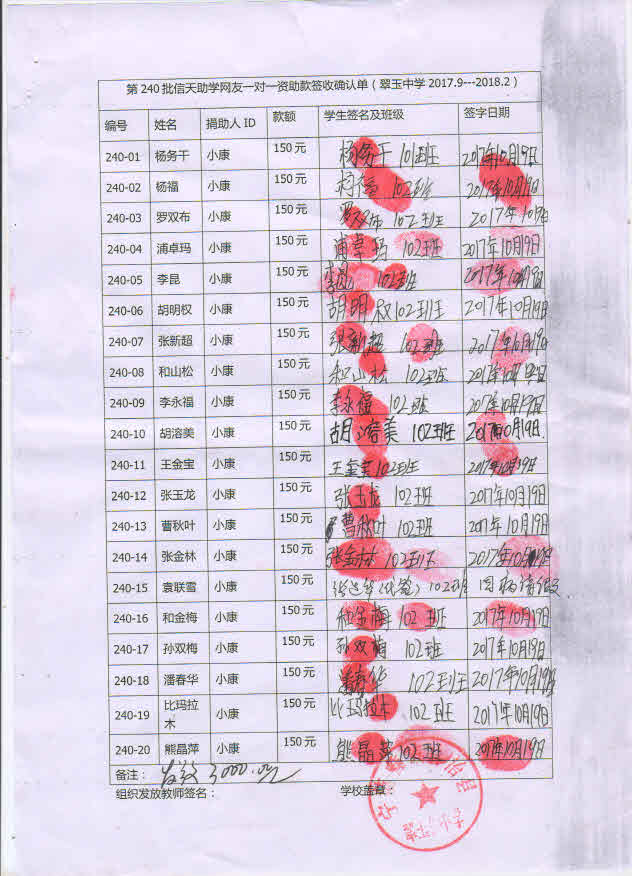 第240批信天助学网友一对一资助款签收确认单（翠玉中学2017.9---2018.2）
编号 姓名 捐助人ID 款额 学生签名及班级 签字日期
240-01 杨务干 小康 150元 杨务干 101班 2017年10月19日
240-02 杨福 小康 150元 杨福 102班 2017年10月19日
240-03 罗双布 小康 150元 罗双布 102班 2017年10月19日
240-04 浦卓玛 小康 150元 浦卓玛 102班 2017年10月19日
240-05 李昆 小康 150元 李昆 102班 2017年10月19日
240-06 胡明权 小康 150元 胡明权 102班 2017年10月19日
240-07 张新超 小康 150元 张新超 102班 2017年10月19日
240-08 和山松 小康 150元 和山松 102班 2017年10月19日
240-09 李永福 小康 150元 李永福 102班 2017年10月19日
240-10 胡溶美 小康 150元 胡溶美 102班 2017年10月19日
240-11 王金宝 小康 150元 王金宝 102班 2017年10月19日
240-12 张玉龙 小康 150元 张玉龙 102班 2017年10月19日
240-13 曹秋叶 小康 150元 曹秋叶 102班 2017年10月19日
240-14 张金林 小康 150元 张金林 102班 2017年10月19日
240-15 袁联雪 小康 150元 (代签) 102班
240-16 和金梅 小康 150元 和金梅 102班 2017年10月19日
240-17 孙双梅 小康 150元 孙双梅 102班 2017年10月19日
240-18 潘春华 小康 150元 潘春华 102班 2017年10月19日
240-19 比玛拉木 小康 150元 比玛拉木 102班 2017年10月19日
240-20 熊昌萍 小康 150元 熊昌萍 102班 2017年10月19日
备注： 发放3000.00元
组织发放教师签名： 学校盖章：